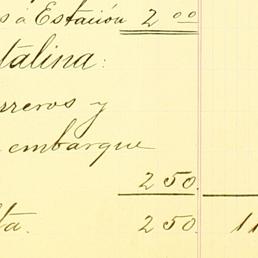 s á Estación 2 00
talina:
rreros y
embarque
250.
ta. 250 11